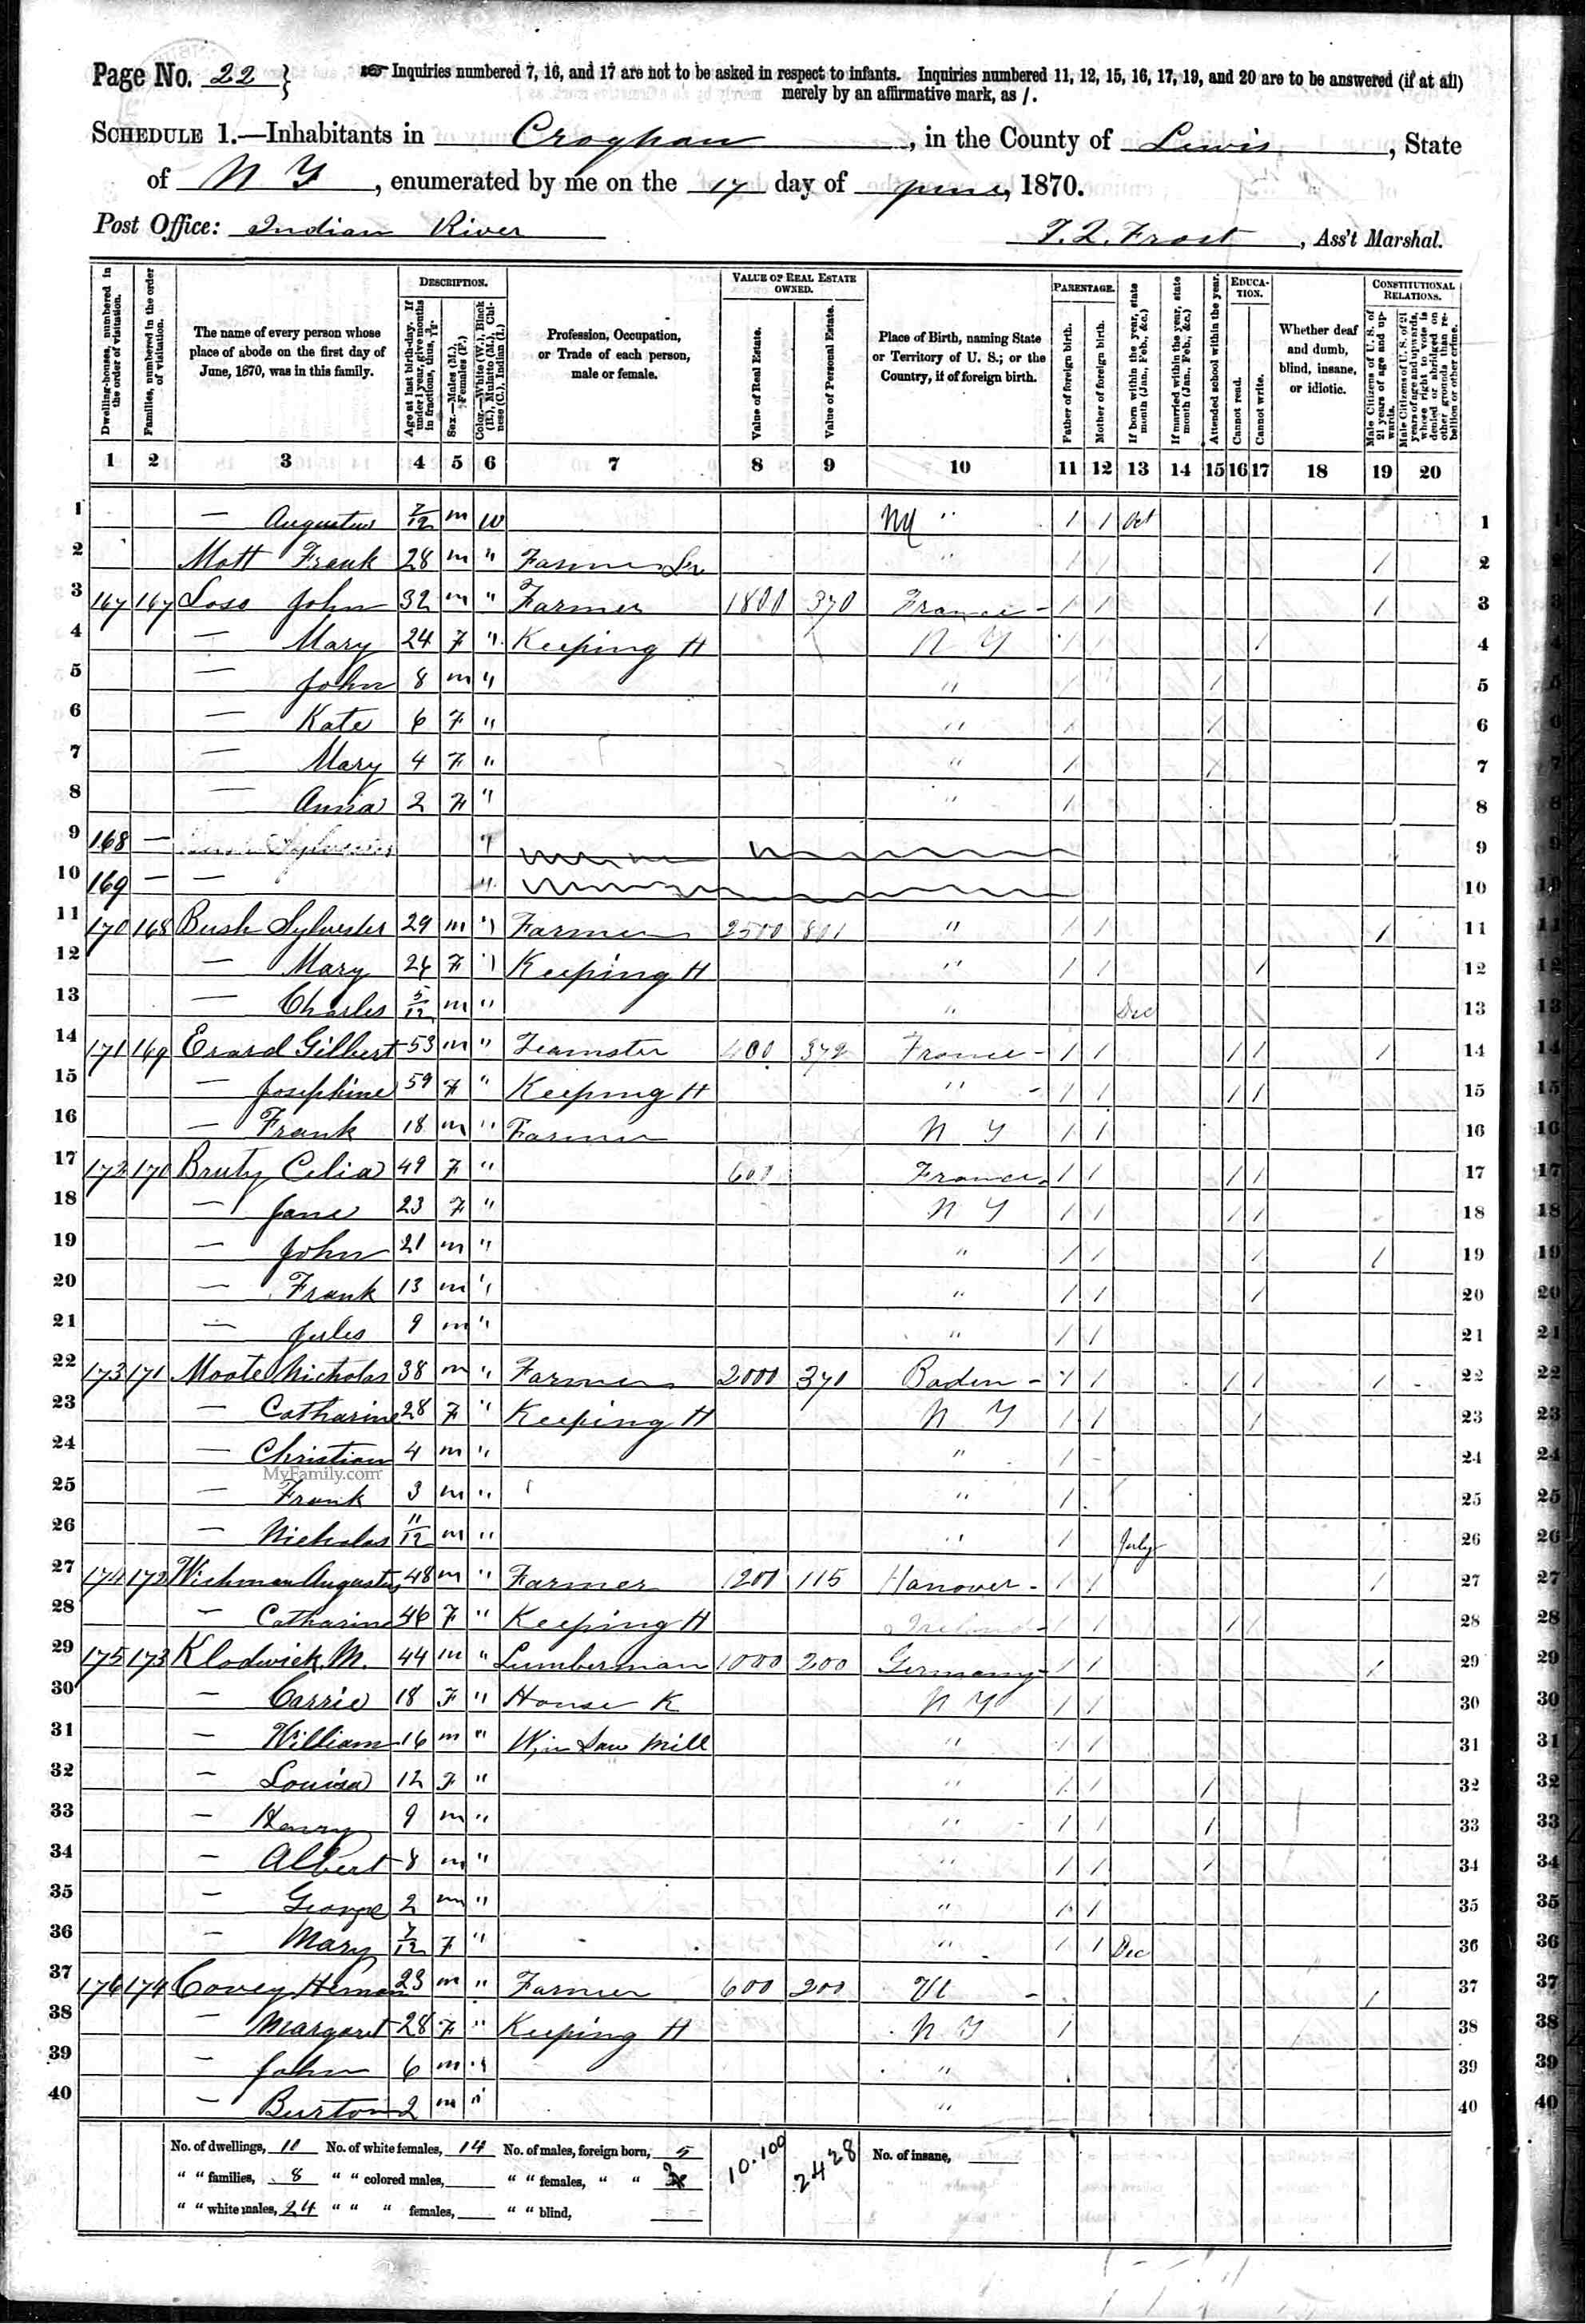 Page No. 22 } Inquiries numbered 7, 16, and 17 are not to be asked in respect to infants. Inquiries numbered 11, 12, 15, 16, 17, 19, and 20 are to be answered (if at all)
merely by an affirmative mark, as /.
SCHEDULE 1.—Inhabitants in Croghan, in the County of Lewis, State
of N Y, enumerated by me on the 17 day of June, 1870.
Post Office: Indian River F. L. Frost, Ass't Marshal.
Dwelling-houses, numbered in the order of visitation.
Families, numbered in the order of visitation.
The name of every person whose place of abode on the first day of June, 1870, was in this family.
DESCRIPTION.
Age at last birth-day. If under 1 year, give months in fractions, thus, 3/12.
Sex.—Males (M.), Females (F.)
Color.—White (W.), Black (B.), Mulatto (M.), Chinese (C.), Indian (I.)
Profession, Occupation, or Trade of each person, male or female.
VALUE OF REAL ESTATE OWNED.
Value of Real Estate.
Value of Personal Estate.
Place of Birth, naming State or Territory of U. S.; or the Country, if of foreign birth.
PARENTAGE.
Father of foreign birth.
Mother of foreign birth.
If born within the year, state month (Jan., Feb., &c.)
If married within the year, state month (Jan., Feb., &c.)
Attended school within the year.
EDUCATION.
Cannot read.
Cannot write.
Whether deaf and dumb, blind, insane, or idiotic.
CONSTITUTIONAL RELATIONS.
Male Citizens of U. S. of 21 years of age and upwards.
Male Citizens of U. S. of 21 years of age and upwards, whose right to vote is denied or abridged on other grounds than rebellion or other crime.
1 2 3 4 5 6 7 8 9 10 11 12 13 14 15 16 17 18 19 20
1 — Augustus 7/12 m W NY " / / Oct 1
2 Mott Frank 28 m " " / / / 2
3 167 167 Loso John 32 m " Farmer 1800 370 France - / / / 3
4 — Mary 24 F " Keeping H N Y / / / 4
5 — John 8 m " " / / 5
6 — Kate 6 F " " / / 6
7 — Mary 4 F " " / / 7
8 — Anna 2 F " " / 8
9 168 — " 9
10 169 — — " 10
11 170 168 Bush Sylvester 29 m " Farmer 2500 801 " / / / 11
12 — Mary 24 F " Keeping H " / / / 12
13 — Charles 5/12 m " " Dec 13
14 171 169 Erard Gilbert 53 m " Teamster 400 372 France - / / / / / 14
15 — Josephine 59 F " Keeping H " - / / / / 15
16 — Frank 18 m " Farmer N Y / / 16
17 172 170 Bruty Celia 49 F " 600 France / / / / 17
18 — Jane 23 F " N Y / / / / 18
19 — John 21 m " " / / / / 19
20 — Frank 13 m " " / / / 20
21 — Jules 9 m " " / / 21
22 173 171 Moote Nicholas 38 m " Farmer 2000 370 Baden - / / / / / 22
23 — Catharine 28 F " Keeping H N Y / / / 23
24 — Christian 4 m " " / 24
MyFamily.com
25 — Frank 3 m " " / 25
26 — Nicholas 11/12 m " " / July 26
27 174 172 Wichman Augustus 48 m " Farmer 1200 115 Hanover - / / / 27
28 — Catharine 46 F " Keeping H Ireland - / / / / 28
29 175 173 Klodwick M. 44 m " Lumberman 1000 200 Germany - / / / 29
30 — Carrie 18 F " House K N Y / / 30
31 — William 16 m " W, in Saw Mill " / / 31
32 — Louisa 12 F " " / / / 32
33 — Henry 9 m " " / / / 33
34 — Albert 8 m " " / / / 34
35 — George 2 m " " / / 35
36 — Mary 7/12 F " " / / Dec 36
37 176 174 Covey Heman 23 m " Farmer 600 200 Vt - / 37
38 — Margaret 28 F " Keeping H N Y / 38
39 — John 6 m " " 39
40 — Burton 2 m " " 40
No. of dwellings, 10 No. of white females, 14 No. of males, foreign born, 5 10.100 2428 No. of insane,
" " families, 8 " " colored males, " " females, " "
" " white males, 24 " " " females, " " blind,